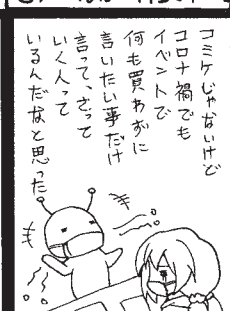 コミケじゃないけど
コロナ禍でも
イベントで
何も買わずに
言いたい事だけ
言って、さって
いく人って
いるんだなと思った